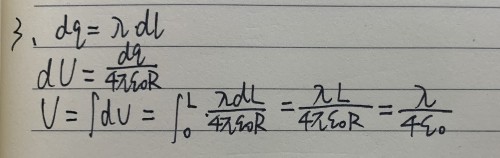 3、dq = λdl
dU = dq/4πε₀R
U = ∫dU = ∫₀ᴸ λdL/4πε₀R = λL/4πε₀R = λ/4ε₀